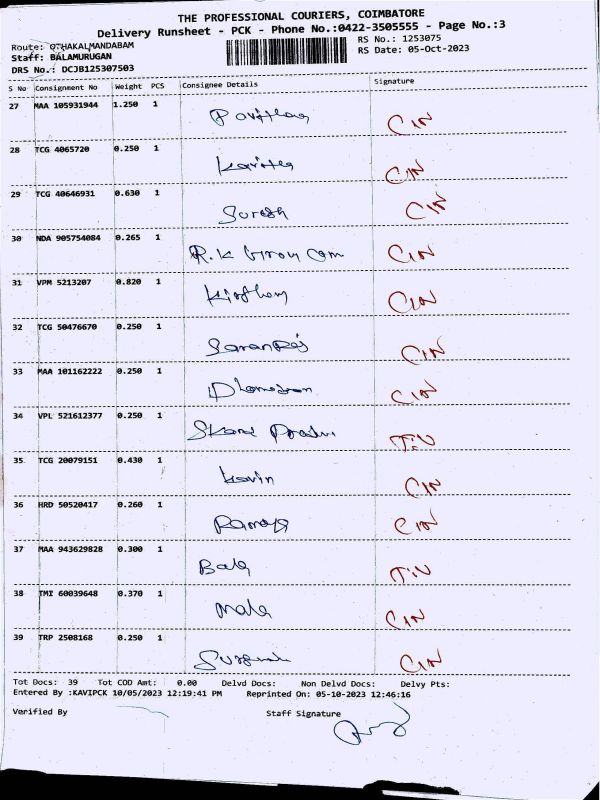 THE PROFESSIONAL COURIERS, COIMBATORE
Delivery Runsheet - PCK - Phone No.:0422-3505555 - Page No.:3
Route: OTHAKALMANDABAM
RS No.: 1253075
Staff: BALAMURUGAN
RS Date: 05-Oct-2023
DRS No.: DCJB125307503
S No Consignment No Weight PCS Consignee Details Signature
27 MAA 105931944 1.250 1
28 TCG 4065720 0.250 1 Kavitha
29 TCG 40646931 0.630 1 Suresh
30 NDA 905754084 0.265 1 R.K com
31 VPM 5213207 0.820 1
32 TCG 50476670 0.250 1 SaranRaj
33 MAA 101162222 0.250 1
34 VPL 521612377 0.250 1
35 TCG 20079151 0.430 1 Kavin
36 HRD 50520417 0.260 1 Ramaya
37 MAA 943629828 0.300 1 Bala
38 TMI 60039648 0.370 1 Mala
39 TRP 2508168 0.250 1
Tot Docs: 39 Tot COD Amt: 0.00 Delvd Docs: Non Delvd Docs: Delvy Pts:
Entered By :KAVIPCK 10/05/2023 12:19:41 PM Reprinted On: 05-10-2023 12:46:16
Verified By Staff Signature